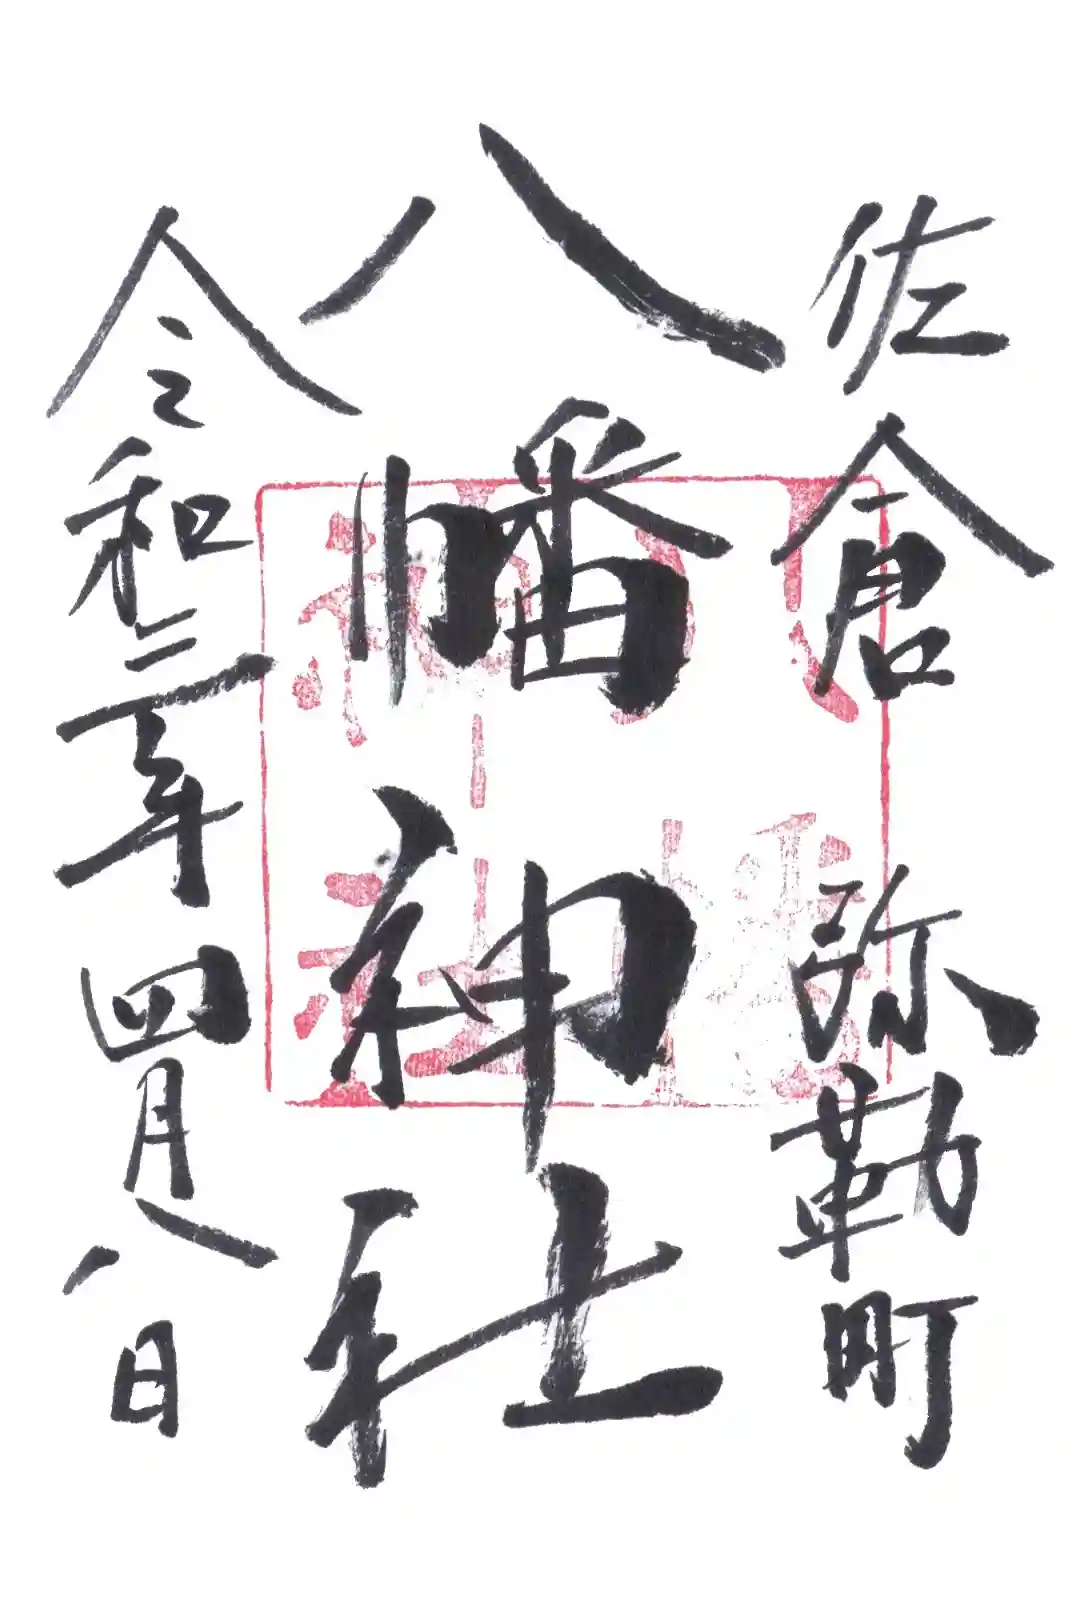 佐倉 弥勒町
八幡神社
令和三年四月八日
八幡
神社